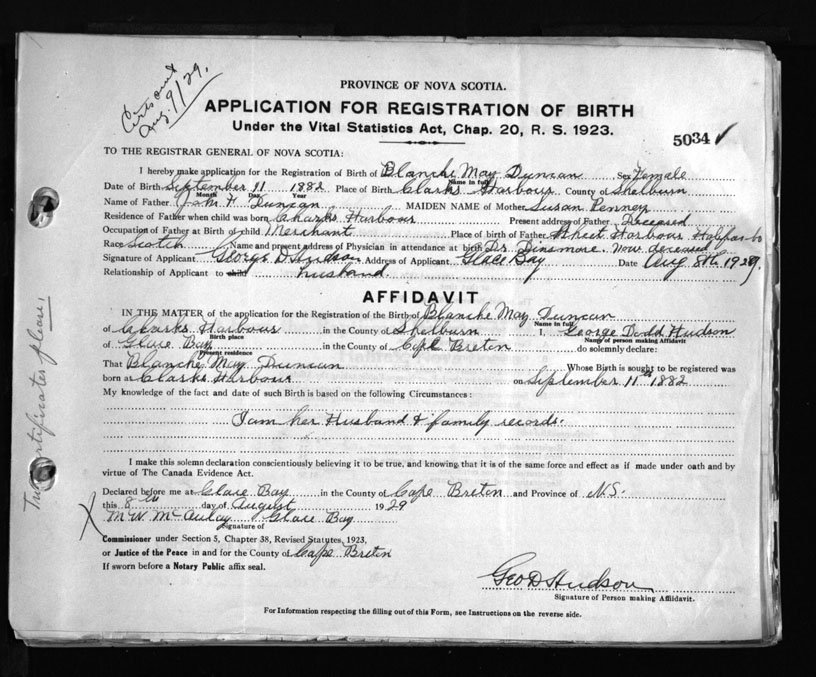 Certs out
Aug. 9/29.
PROVINCE OF NOVA SCOTIA.
APPLICATION FOR REGISTRATION OF BIRTH
Under the Vital Statistics Act, Chap. 20, R. S. 1923.
5034 ✓
TO THE REGISTRAR GENERAL OF NOVA SCOTIA:
I hereby make application for the Registration of Birth of Blanche May Duncan Sex Female
Name in full
Date of Birth September 11 1882 Place of Birth Clarks Harbour County of Shelburn
Month Day Year
Name of Father John H. Duncan MAIDEN NAME of Mother Susan Penney
Residence of Father when child was born Charks Harbour Present address of Father Deceased
Occupation of Father at Birth of child Merchant Place of birth of Father Sheet Harbour Halifax Co
Race Scotch Name and present address of Physician in attendance at birth Dr. Dinsmore. Now deceased
Signature of Applicant George D Hudson Address of Applicant Glace Bay Date Aug 8th 1929.
Relationship of Applicant to child husband
AFFIDAVIT
IN THE MATTER of the application for the Registration of the Birth of Blanche May Duncan
Name in full
of Charks Harbour in the County of Shelburn I, George Dodd Hudson
Birth place Name of person making Affidavit
of Glace Bay in the County of Cape Breton do solemnly declare:
Present residence
That Blanche May Duncan Whose Birth is sought to be registered was
born at Clarks Harbour on September 11th 1882
My knowledge of the fact and date of such Birth is based on the following Circumstances:
I am her Husband & family records.
I make this solemn declaration conscientiously believing it to be true, and knowing that it is of the same force and effect as if made under oath and by
virtue of The Canada Evidence Act.
Declared before me at Glace Bay in the County of Cape Breton and Province of N.S.
this 8th day of August 1929
X M W McAulay Glace Bay
Signature of
Commissioner under Section 5, Chapter 38, Revised Statutes, 1923,
or Justice of the Peace in and for the County of Cape Breton
If sworn before a Notary Public affix seal.
Geo D Hudson
Signature of Person making Affidavit.
For Information respecting the filling out of this Form, see Instructions on the reverse side.
Two certificates please.